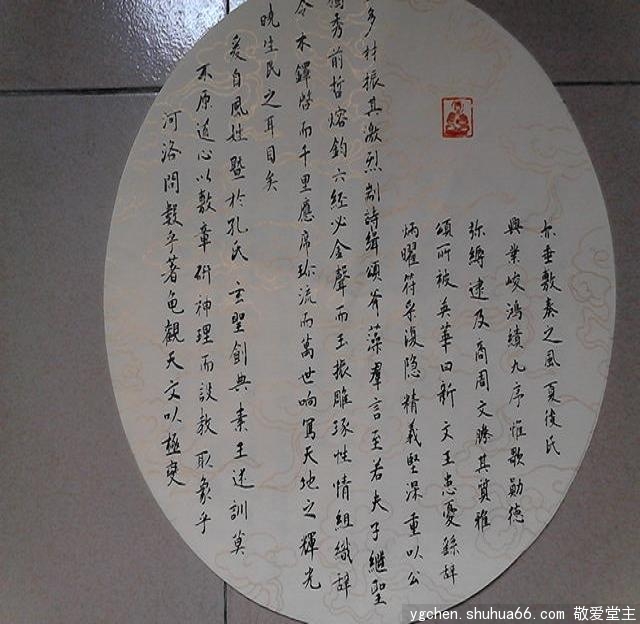 亦垂敷奏之風夏後氏
興業峻鴻績九序惟歌勛德
弥縟逮及商周文勝其質雅
頌所被英華日新文王患憂繇辞
炳曜符采復隐精義堅深重以公
多材振其激烈制詩緝頌斧藻羣言至若夫子繼聖
獨秀前哲熔鈞六經必金聲而玉振雕琢性情組織辞
令木鐸啓而千里應席珍流而萬世响寫天地之輝光
曉生民之耳目矣
爰自風姓暨於孔氏玄聖創典素王述訓莫
不原道心以敷章研神理而設教取象乎
河洛問數乎蓍龟觀天文以極變
ygchen.shuhua66.com 敬爱堂主